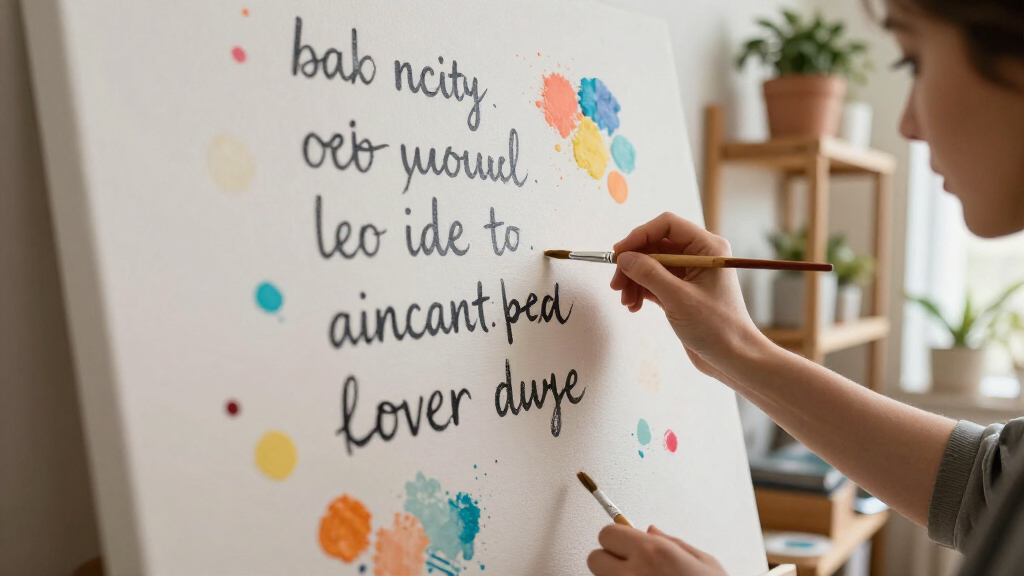 bab ncity.
oeb yuouul.
leo ide to.
aincant. ped
fover duye